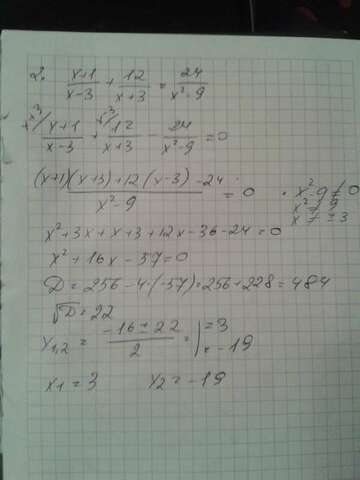 2. (x+1)/(x-3) + 12/(x+3) = 24/(x²-9)
x+3/ (x+1)/(x-3) + x-3/ 12/(x+3) - 24/(x²-9) = 0
((x+1)(x+3)+12(x-3)-24)/(x²-9) = 0 • x²-9≠0
x²≠9
x≠±3
x²+3x+x+3+12x-36-24=0
x²+16x-57=0
D=256-4·(-57)=256+228=484
√D=22
x₁,₂ = (-16±22)/2 = | =3
= -19
x₁=3 x₂=-19